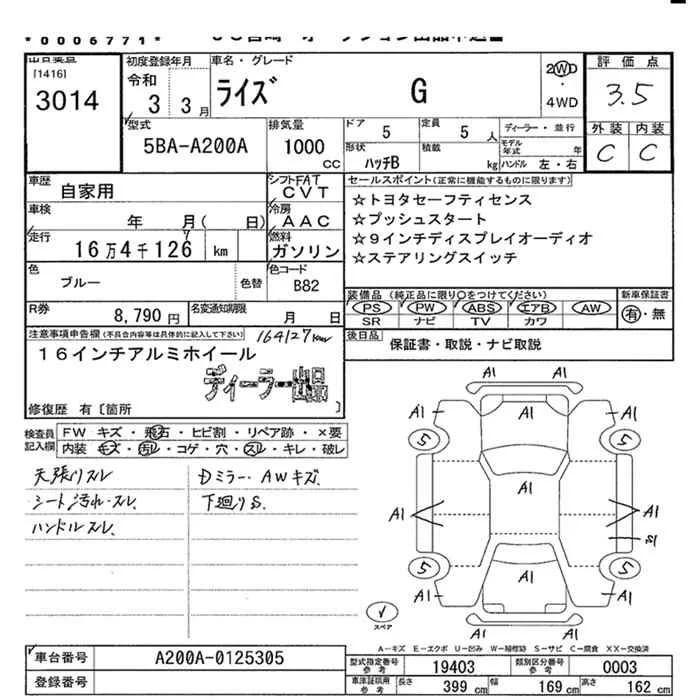 *0006771*
[1416]
3014
初度登録年月
令和
3 3月
車名・グレード
ライズ G
2WD
・
4WD
評価点
3.5
外装 内装
C C
型式
5BA-A200A
排気量
1000
cc
ドア 5
定員 5 人
形状
ハッチB
積載 kg
ディーラー・並行
モデル年式 年
ハンドル 左・右
車歴
自家用
シフト FAT
CVT
車検 年 月( 日)
冷房
AAC
走行
16万4千126 km
7
燃料
ガソリン
色
ブルー
色替
色コード
B82
R券
8,790円
名変通知期限
月 日
セールスポイント(正常に機能するものに限ります)
☆トヨタセーフティセンス
☆プッシュスタート
☆9インチディスプレイオーディオ
☆ステアリングスイッチ
装備品(純正品に限り○をつけてください)
PS PW ABS エアB AW
SR ナビ TV カワ
新車保証書
有・無
後日品
保証書・取説・ナビ取説
注意事項申告欄(不具合内容等は具体的に記入して下さい)
164127km
16インチアルミホイール
ディーラー出品
修復歴 有〔箇所 〕
検査員
記入欄
FW キズ・飛石・ヒビ割・リペア跡・×要
内装 キズ・汚れ・コゲ・穴・スレ・キレ・破レ
天張りスレ
シート汚れ・スレ
ハンドルスレ
Dミラー・AWキズ
下廻りS
A1 A1 A1
5 5
A1
A1 A1
S1
5 5
A1 A1 A1
スペア
A-キズ E-エクボ U-凹み W-補修跡 S-サビ C-腐食 XX-交換済
車台番号
A200A-0125305
登録番号
型式指定番号
参考
19403
類別区分番号
参考
0003
車庫証明用
参考
長さ 399 cm
幅 169 cm
高さ 162 cm